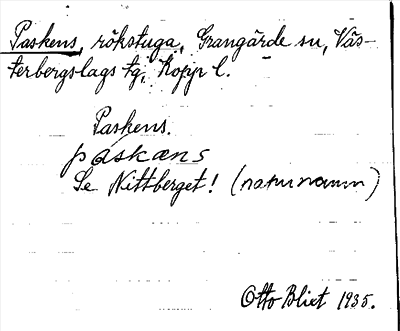 Paskens, rökstuga, Grangärde sn, Väs-
terbergslags tg, Kopp l.
Paskens.
páskæns
Se Nittberget! (naturnamn)
Otto Blixt 1935.